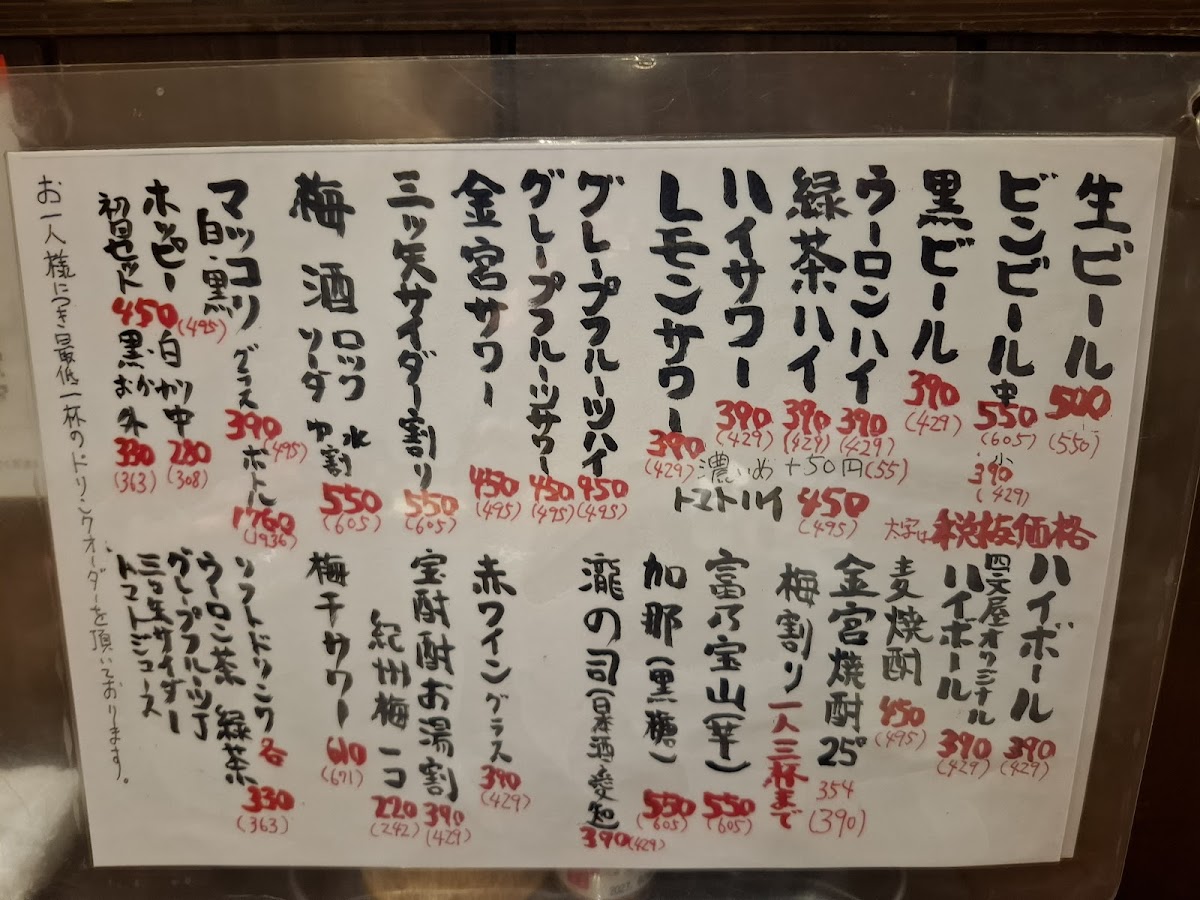 生ビール 500 (550)
ビンビール 中 550 (605) 小 390 (429)
黒ビール 390 (429)
ウーロンハイ 390 (429)
緑茶ハイ 390 (429)
ハイサワー 390 (429)
レモンサワー 390 (429)
濃いめ +50円(55)
トマトハイ 450 (495)
グレープフルーツハイ 450 (495)
グレープフルーツサワー 450 (495)
金宮サワー 450 (495)
三ッ矢サイダー割り 550 (605)
梅酒 ロック ソーダ 水割 550 (605)
マッコリ 白・黒 グラス 390 (495) ボトル 1760 (1936)
ホッピー 初回セット 450 (495)
白 カリ 中 280 (308)
黒 おかわり 外 330 (363)
お一人様につき最低一杯のドリンクオーダーを頂いております。
太字は税抜価格
ハイボール 390 (429)
四文屋オリジナル
ハイボール 390 (429)
麦焼酎 450 (495)
金宮焼酎25° 354 (390)
梅割り 一人三杯まで
富乃宝山(芋) 550 (605)
加那(黒糖) 550 (605)
瀧の司(日本酒・愛知) 390 (429)
赤ワイン グラス 390 (429)
宝酎酎お湯割 390 (429)
紀州梅 一コ 220 (242)
梅干サワー 610 (671)
ソフトドリンク 各 330 (363)
ウーロン茶 緑茶
グレープフルーツJ
三ッ矢サイダー
トマトジュース